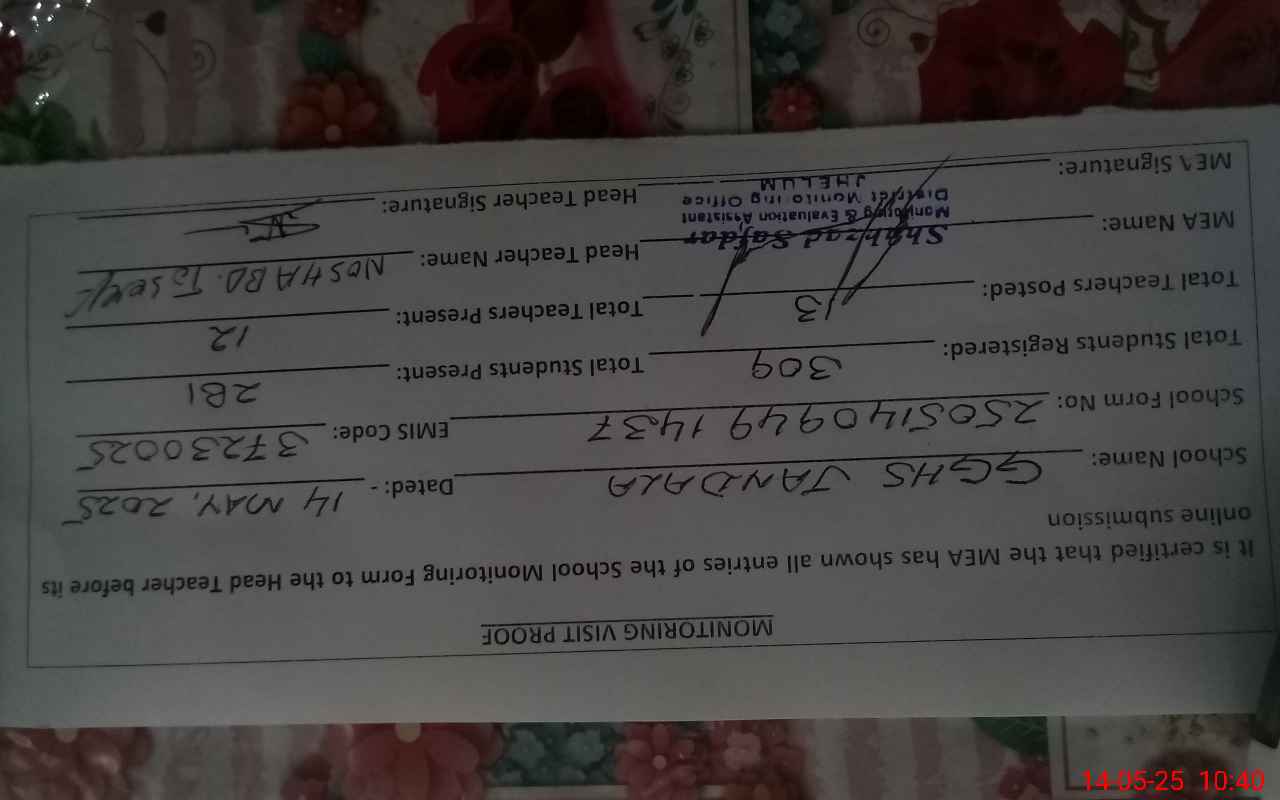 MONITORING VISIT PROOF
It is certified that the MEA has shown all entries of the School Monitoring Form to the Head Teacher before its
online submission
School Name: GGHS JANDALA Dated: - 14 MAY, 2025
School Form No: 250514094914 37 EMIS Code: 37230025
Total Students Registered: 309 Total Students Present: 281
Total Teachers Posted: 13 Total Teachers Present: 12
MEA Name: Shahzad Safdar Head Teacher Name: NOSHABA
Monitoring & Evaluation Assistant
District Monitoring Office
JHELUM
MEA Signature: Head Teacher Signature:
14-05-25 10:40